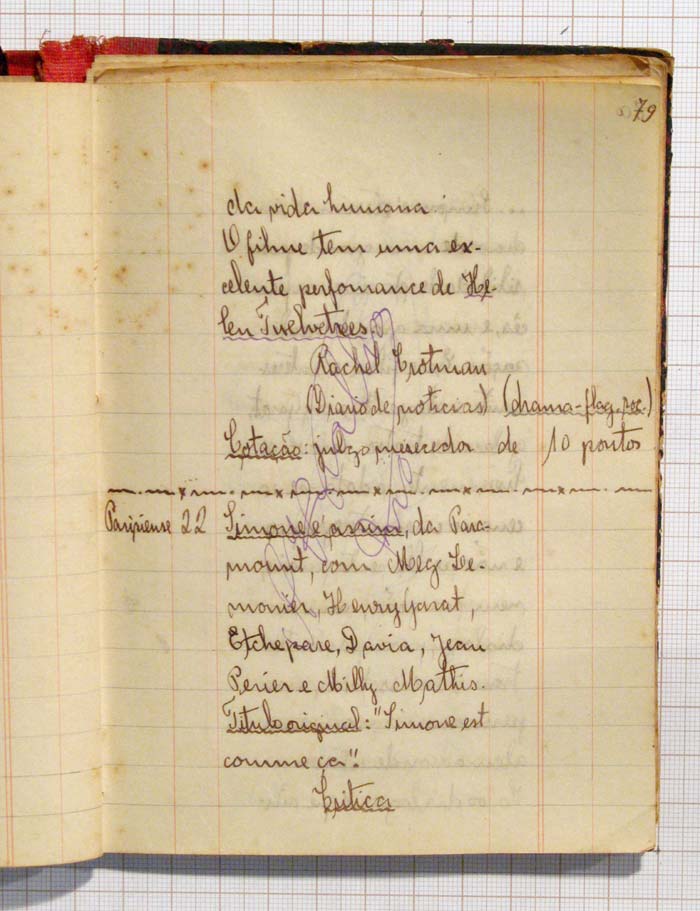 79
da vida humana.
O filme tem uma ex-
celente perfomance de He-
len Twelvetrees.
Rachel Crotman
(Diario de noticias) (drama-flag. soc.)
Cotação: julgo merecedor de 10 pontos
Parisiense 22 Simone é assim, da Para-
mount, com Meg Le-
monier, Henry Garat,
Etchepare, Davia, Jean
Perier e Milly Mathis.
Titulo original: "Simone est
comme ça".
Critica